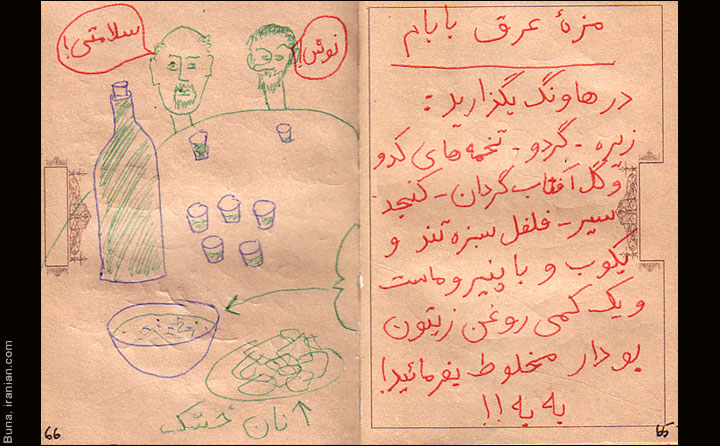 مزهٔ عرق بابام
در هاونگ بگذارید:
زیره - گردو - تخمه های کدو
و گل آفتاب گردان - کنجد
سیر - فلفل سبزه تند و
بکوب و با پنیر و ماست
و یک کمی روغن زیتون
بو دار مخلوط بفرمائید!
به به!!
65
سلامتی!
نوش!
نان خشک
66
Buna, iranian.com